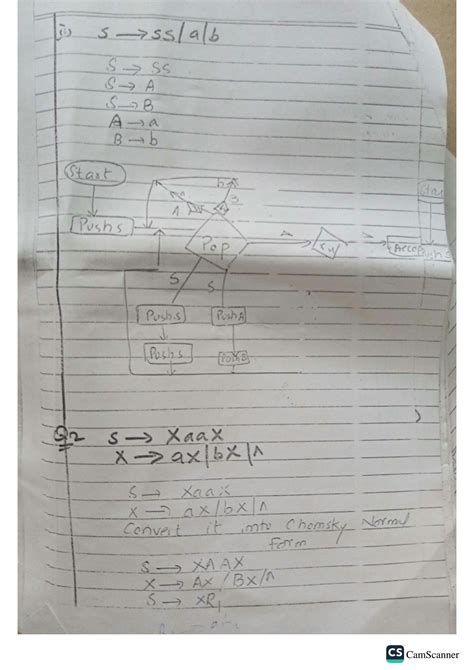 ii) S → SS/a/b
S → SS
S → A
S → B
A → a
B → b
Start
Push s
Pop
Accept
Push s
S
S
Push s
Push A
Push s
Push B
Q2 S → XaaX
X → aX/bX/Λ
S → XaaX
X → aX/bX/Λ
Convert it into Chomsky Normal
Form
S → XAAX
X → AX/BX/Λ
S → XR₁
CS CamScanner